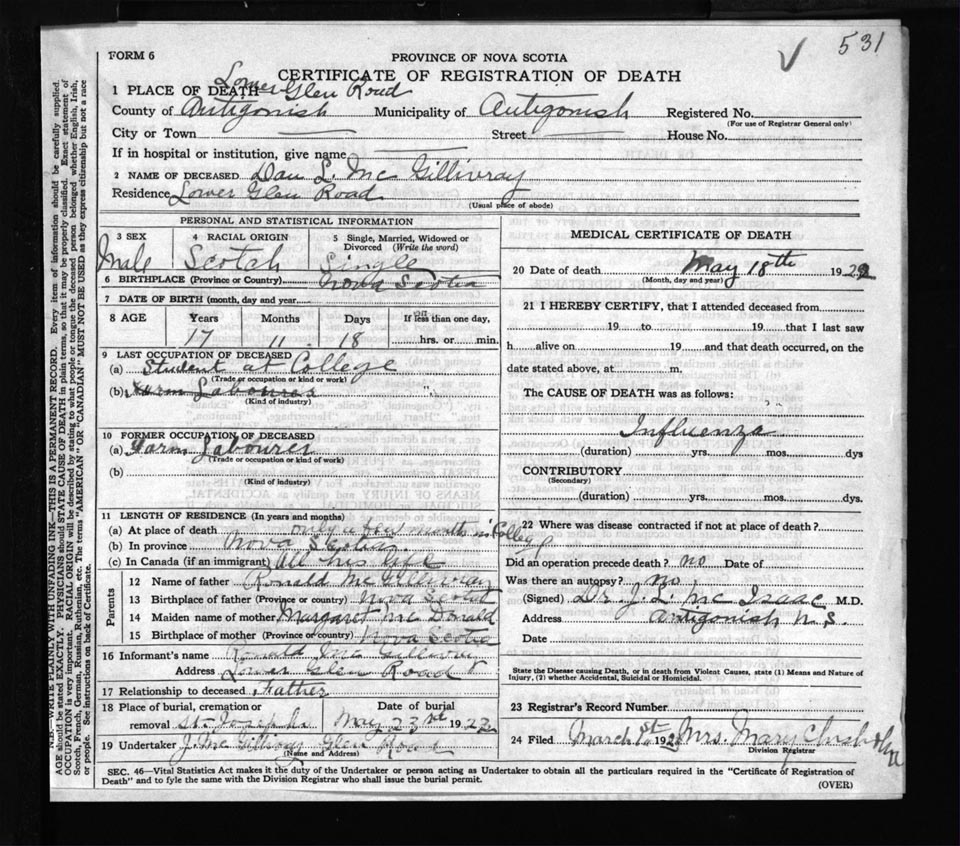 531
FORM 6
PROVINCE OF NOVA SCOTIA
CERTIFICATE OF REGISTRATION OF DEATH
1 PLACE OF DEATH Lower Glen Road
County of Antigonish Municipality of Antigonish Registered No.
(For use of Registrar General only)
City or Town Street House No.
If in hospital or institution, give name
2 NAME OF DECEASED Dan L. Mc Gillivray
Residence Lower Glen Road
(Usual place of abode)
PERSONAL AND STATISTICAL INFORMATION
3 SEX 4 RACIAL ORIGIN 5 Single, Married, Widowed or Divorced (Write the word)
Male Scotch Single
6 BIRTHPLACE (Province or Country) Nova Scotia
7 DATE OF BIRTH (month, day and year
8 AGE Years Months Days If less than one day,
17 11 18 hrs. or min.
9 LAST OCCUPATION OF DECEASED
(a) Student at College
(Trade or occupation or kind or work)
(b) Farm Labourer
(Kind of industry)
10 FORMER OCCUPATION OF DECEASED
(a) Farm Labourer
(Trade or occupation or kind of work)
(b)
(Kind of industry)
11 LENGTH OF RESIDENCE (In years and months)
(a) At place of death only a few months in College
(b) In province Nova Scotia
(c) In Canada (if an immigrant) All his life
Parents
12 Name of father Ronald Mc Gillivray
13 Birthplace of father (Province or country) Nova Scotia
14 Maiden name of mother Margaret Mc Donald
15 Birthplace of mother (Province or country) Nova Scotia
16 Informant's name Ronald Mc Gillivray
Address Lower Glen Road
17 Relationship to deceased Father
18 Place of burial, cremation or removal St Josephs Date of burial May 23rd 1922
19 Undertaker J. Mc Gillivray Glen Road
(Name and Address)
MEDICAL CERTIFICATE OF DEATH
20 Date of death May 18th 1922
(Month, day and year)
21 I HEREBY CERTIFY, that I attended deceased from
19 to 19 that I last saw
h alive on 19 and that death occurred, on the
date stated above, at m.
The CAUSE OF DEATH was as follows:
Influenza
(duration) yrs. mos. dys
CONTRIBUTORY
(Secondary)
(duration) yrs. mos. dys.
22 Where was disease contracted if not at place of death?
Did an operation precede death? no Date of
Was there an autopsy? no
(Signed) Dr J. L. Mc Isaac M.D.
Address Antigonish N.S.
Date
State the Disease causing Death, or in death from Violent Causes, state (1) Means and Nature of Injury, (2) whether Accidental, Suicidal or Homicidal.
23 Registrar's Record Number
24 Filed March 1st 192 Mrs. Mary Chisholm
Division Registrar
SEC. 46—Vital Statistics Act makes it the duty of the Undertaker or person acting as Undertaker to obtain all the particulars required in the "Certificate of Registration of
Death" and to fyle the same with the Division Registrar who shall issue the burial permit.
(OVER)
N.B.—WRITE PLAINLY WITH UNFADING INK—THIS IS A PERMANENT RECORD. Every item of information should be carefully supplied.
AGE should be stated EXACTLY. PHYSICIANS should STATE CAUSE OF DEATH in plain terms, so that it may be properly classified. Exact statement of
OCCUPATION is very important. RACIAL ORIGIN will be described by stating to what people or tongue the deceased person belonged whether English, Irish,
Scotch, French, German, Russian, Ruthenian, etc. The terms "AMERICAN" OR "CANADIAN" MUST NOT BE USED as they express citizenship but not a race
or people. See instructions on back of Certificate.